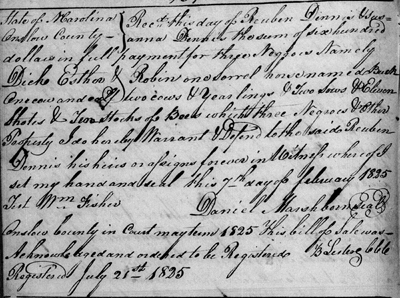 State of N Carolina } Recd this day of Reuben Dennis & Sus-
Onslow County — } anna Dennis the sum of six hundred
dollars in full payment for three Negroes Namely
Dicke Esther & Robin one sorrel horse named Buck
one cow and calf two cows & Yearlings & Two Sows & Eleven
Shotes & Two Stocks of Bees which three Negroes & other
Property I do hereby Warrant & Defend to the said Reuben
Dennis his heirs or assigns forever in Witness whereof I
set my hand and seal this 7th day of February 1825
Test Wm Fisher
Daniel Marshborn Seal
Onslow County in Court may term 1825 This bill of Sale was
Acknowledged and ordered to be Registered
Registered July 21st 1825